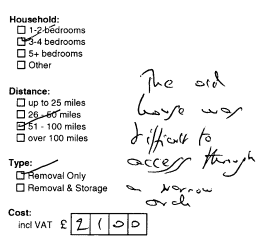 Household:
1-2 bedrooms
3-4 bedrooms
5+ bedrooms
Other
Distance:
up to 25 miles
26 - 50 miles
51 - 100 miles
over 100 miles
Type:
Removal Only
Removal & Storage
Cost:
incl VAT £ 2100
The old
house was
difficult to
access through
a narrow
arch